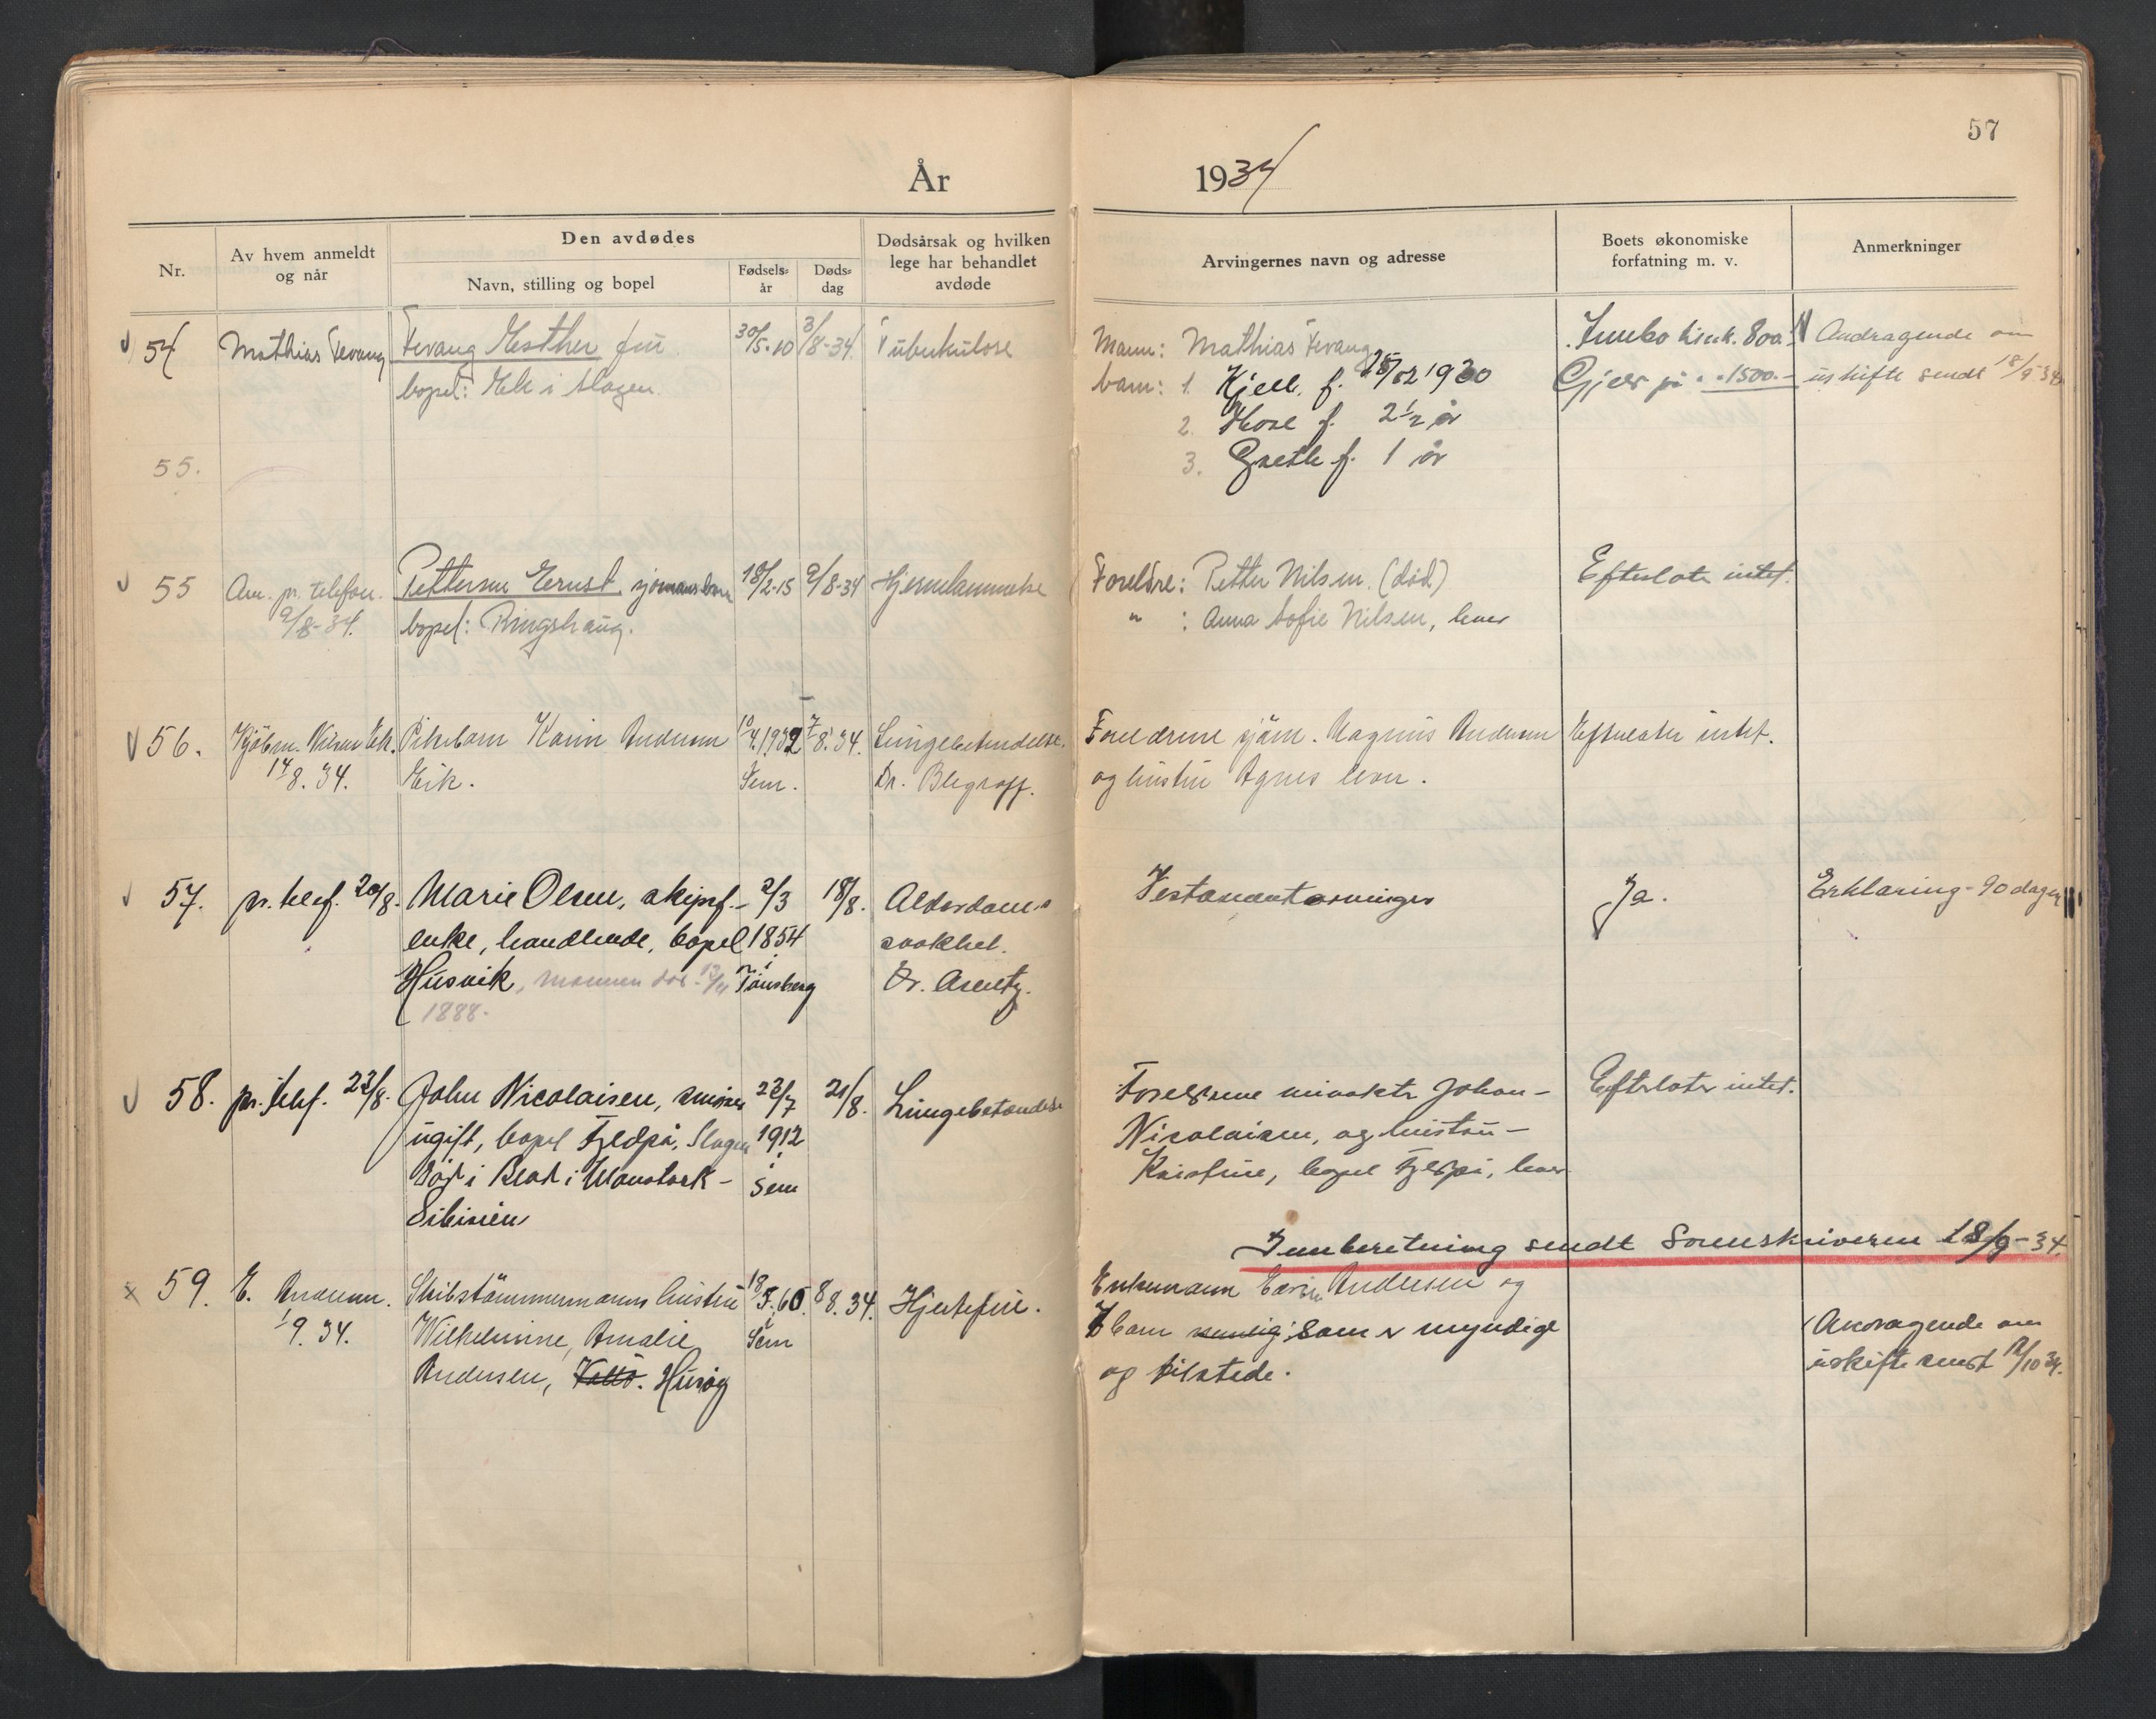 57
År 1934
Nr.
Av hvem anmeldt
og når
Den avdødes
Navn, stilling og bopel
Fødsels-
år
Døds-
dag
Dødsårsak og hvilken
lege har behandlet
avdøde
Arvingernes navn og adresse
Boets økonomiske
forfatning m. v.
Anmerkninger
54 Mathias Tevang Tevang Esther fru 30/5-10 3/8-34 Tuberkulose
bopel: Eik i Slagen.
Mann: Mathias Tevang
barn: 1. Kjell f. 1930
2. f. 2½ år
3. Grethe f. 1 år
Innbo 800
Gjeld på 1500.-
Andragende om
uskifte sendt 18/9-34
55.
55 Anm. pr. telefon. Pettersen Ernst, 18/2-15 9/8-34 Hjernelammelse
9/8-34. bopel: Ringshaug.
Foreldre: Petter Nilsen. (død)
" : Anna Sofie Nilsen, lever
Efterlater intet.
56. Pikebarn Karin Andersen 10/4.1932 7/8.34. Lungebetendelse.
14/8.34. Eik. Sem. Dr.
Foreldrene sjøm. Magnus Andersen
og hustru Agnes lever.
Efterlater intet.
57. pr. telef. 20/8. Marie Olsen, skipsf.- 2/3 18/8. Alderdoms
enke, handlende, bopel 1854 svakhet.
Husvik, mannen død 13/11 i Tønsberg Dr. Arentz.
1888.
Testamentarvinger
Ja.
Erklæring - 90 dagen
58. pr. telef. 22/8. John Nicolaisen, 23/7 21/8. Lungebetendelse
ugift, bopel Slagen 1912
død i i - i Sem
Sibirien
Foreldrene Johan-
Nicolaisen, og hustru-
Kristine, bopel lever
Efterlater intet.
Innberetning sendt Sorenskriveren 18/9-34
59. E. Andersen. Skibstømmermanns hustru 18/5.60. 8/8.34. Hjertefeil.
1/9.34. Wilhelmine, Amalie Sem
Andersen, Husøy
Enkemann Andersen og
7 barn som er myndige
og tilstede.
Andragende om
uskifte sendt /10 34.